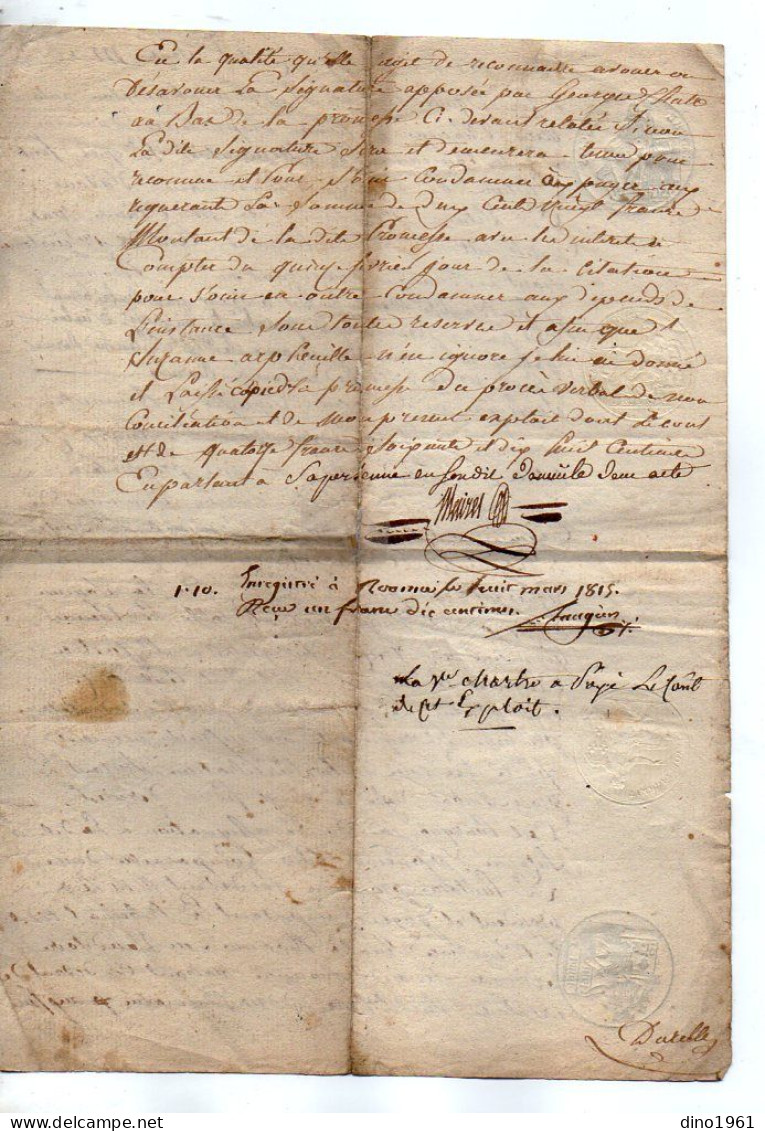 En la qualité qu'elle agit de reconnaitre avouer ou
Désavouer La signature apposée par George
au Bas de la promesse Ci-devant relatée Sinon
La dite signature sera et demeurera tenue pour
reconnue et pour s'ouir Condamner à payer aux
requerants La Somme de deux Cent vingt francs
Montant de la dite Promesse avec les interets à
Compter du quinze fevrier jour de la Citation
pour s'ouir en outre Condamner aux depends de
L'instance sous toute reserve et afin que
Suzanne n'en ignore je lui ai donné
et Laissé copie de la promesse du procès verbal de non
Conciliation et de mon present exploit dont Le cout
est de quatorze francs soixante et dix huit Centimes
En parlant à Sa personne en Son dit domicile Dont acte
1-10. Enregistré à le huit mars 1815.
Reçu un franc dix centimes.
La Ve a Payé Le Cout
de cet Exploit.
dino1961